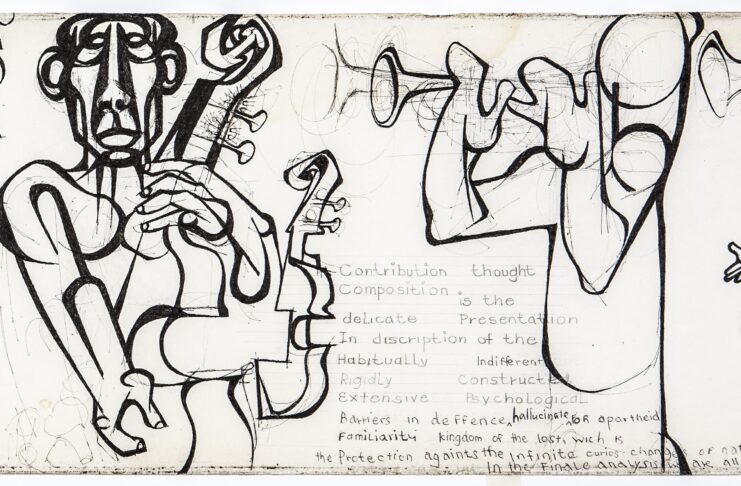 Contribution thought
Composition is the
delicate Presentation
In discription of the
Habitually Indifferent
Rigidly Constructed
Extensive Psychological
Barriers in deffence, hallucinate, for apartheid
Familiarity kingdom of the lost, wich is
the Protection againts the Infinite curios changes of
In the Finale analysis we are all